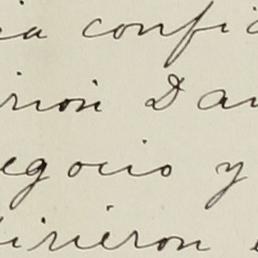 ia confi
rion Da
egocio y
irieron